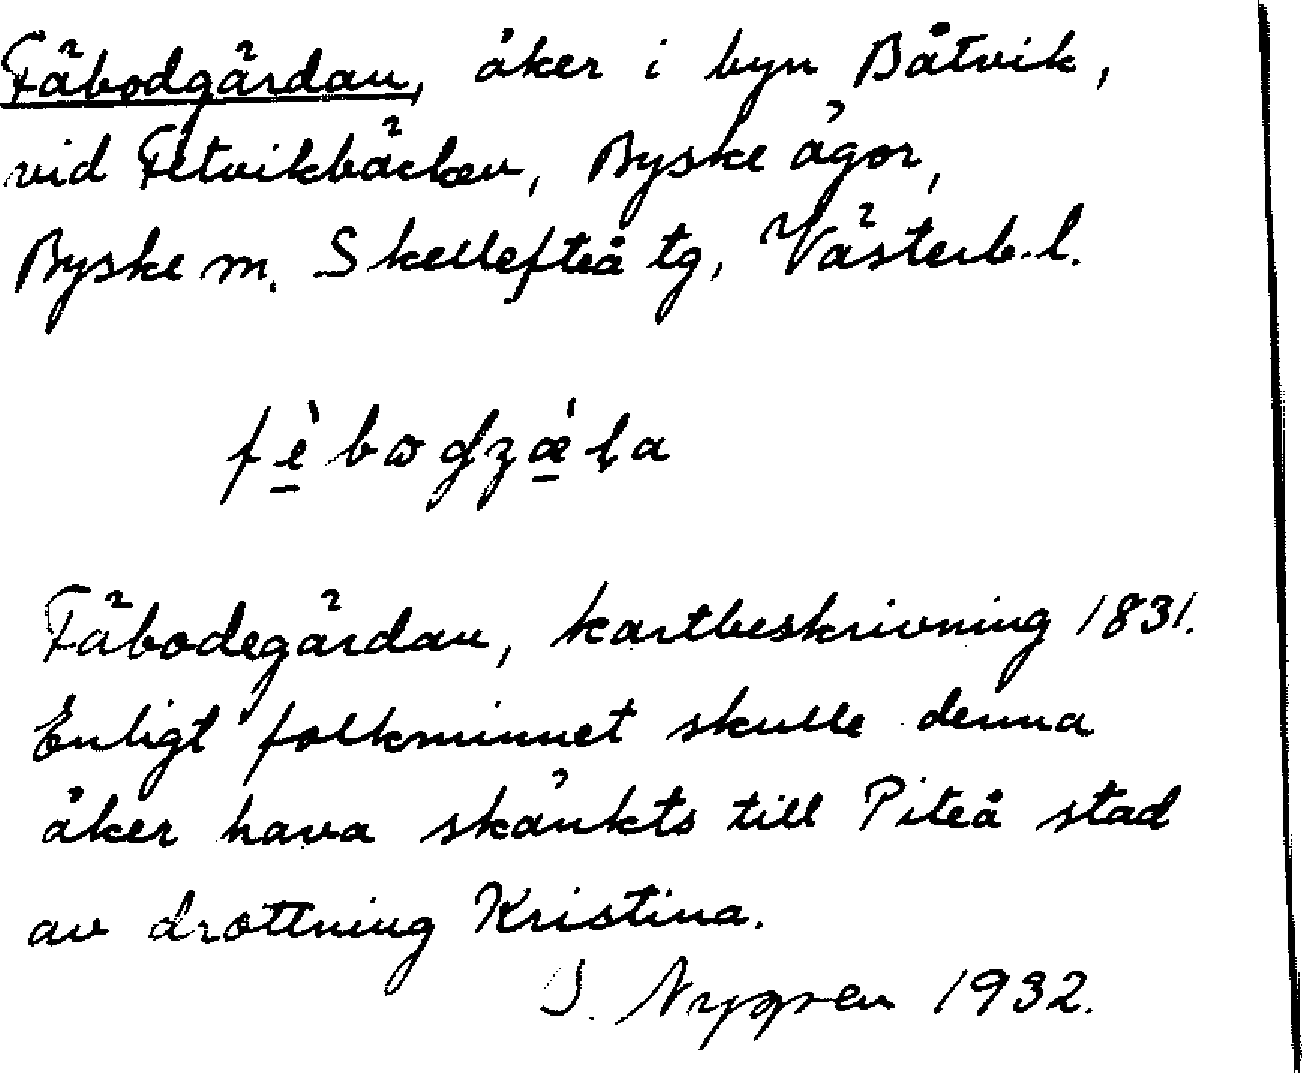 Fäbodgärdan, åker i byn Båtvik,
vid Fetvikbäcken, Byske ägor,
Byske sn. Skellefteå tg, Västerb. l.
Fäbodegärdan, kartbeskrivning 1831.
Enligt folkminnet skulle denna
åker hava skänkts till Piteå stad
av drottning Kristina.
J. Nygren 1932.